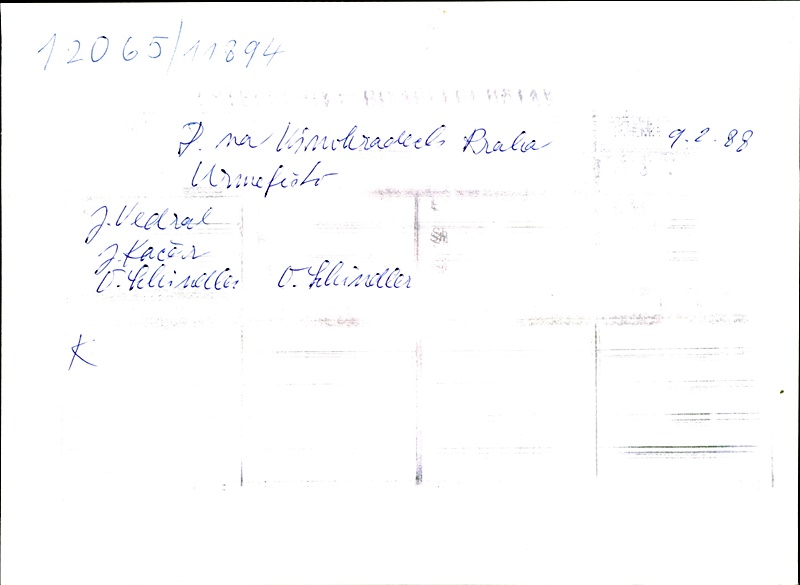 12065/11894
D. na Vinohradech Praha 9.2.88
Urmefisto
J. Vedral
J. Kačer
O. Schindler O. Schindler
K